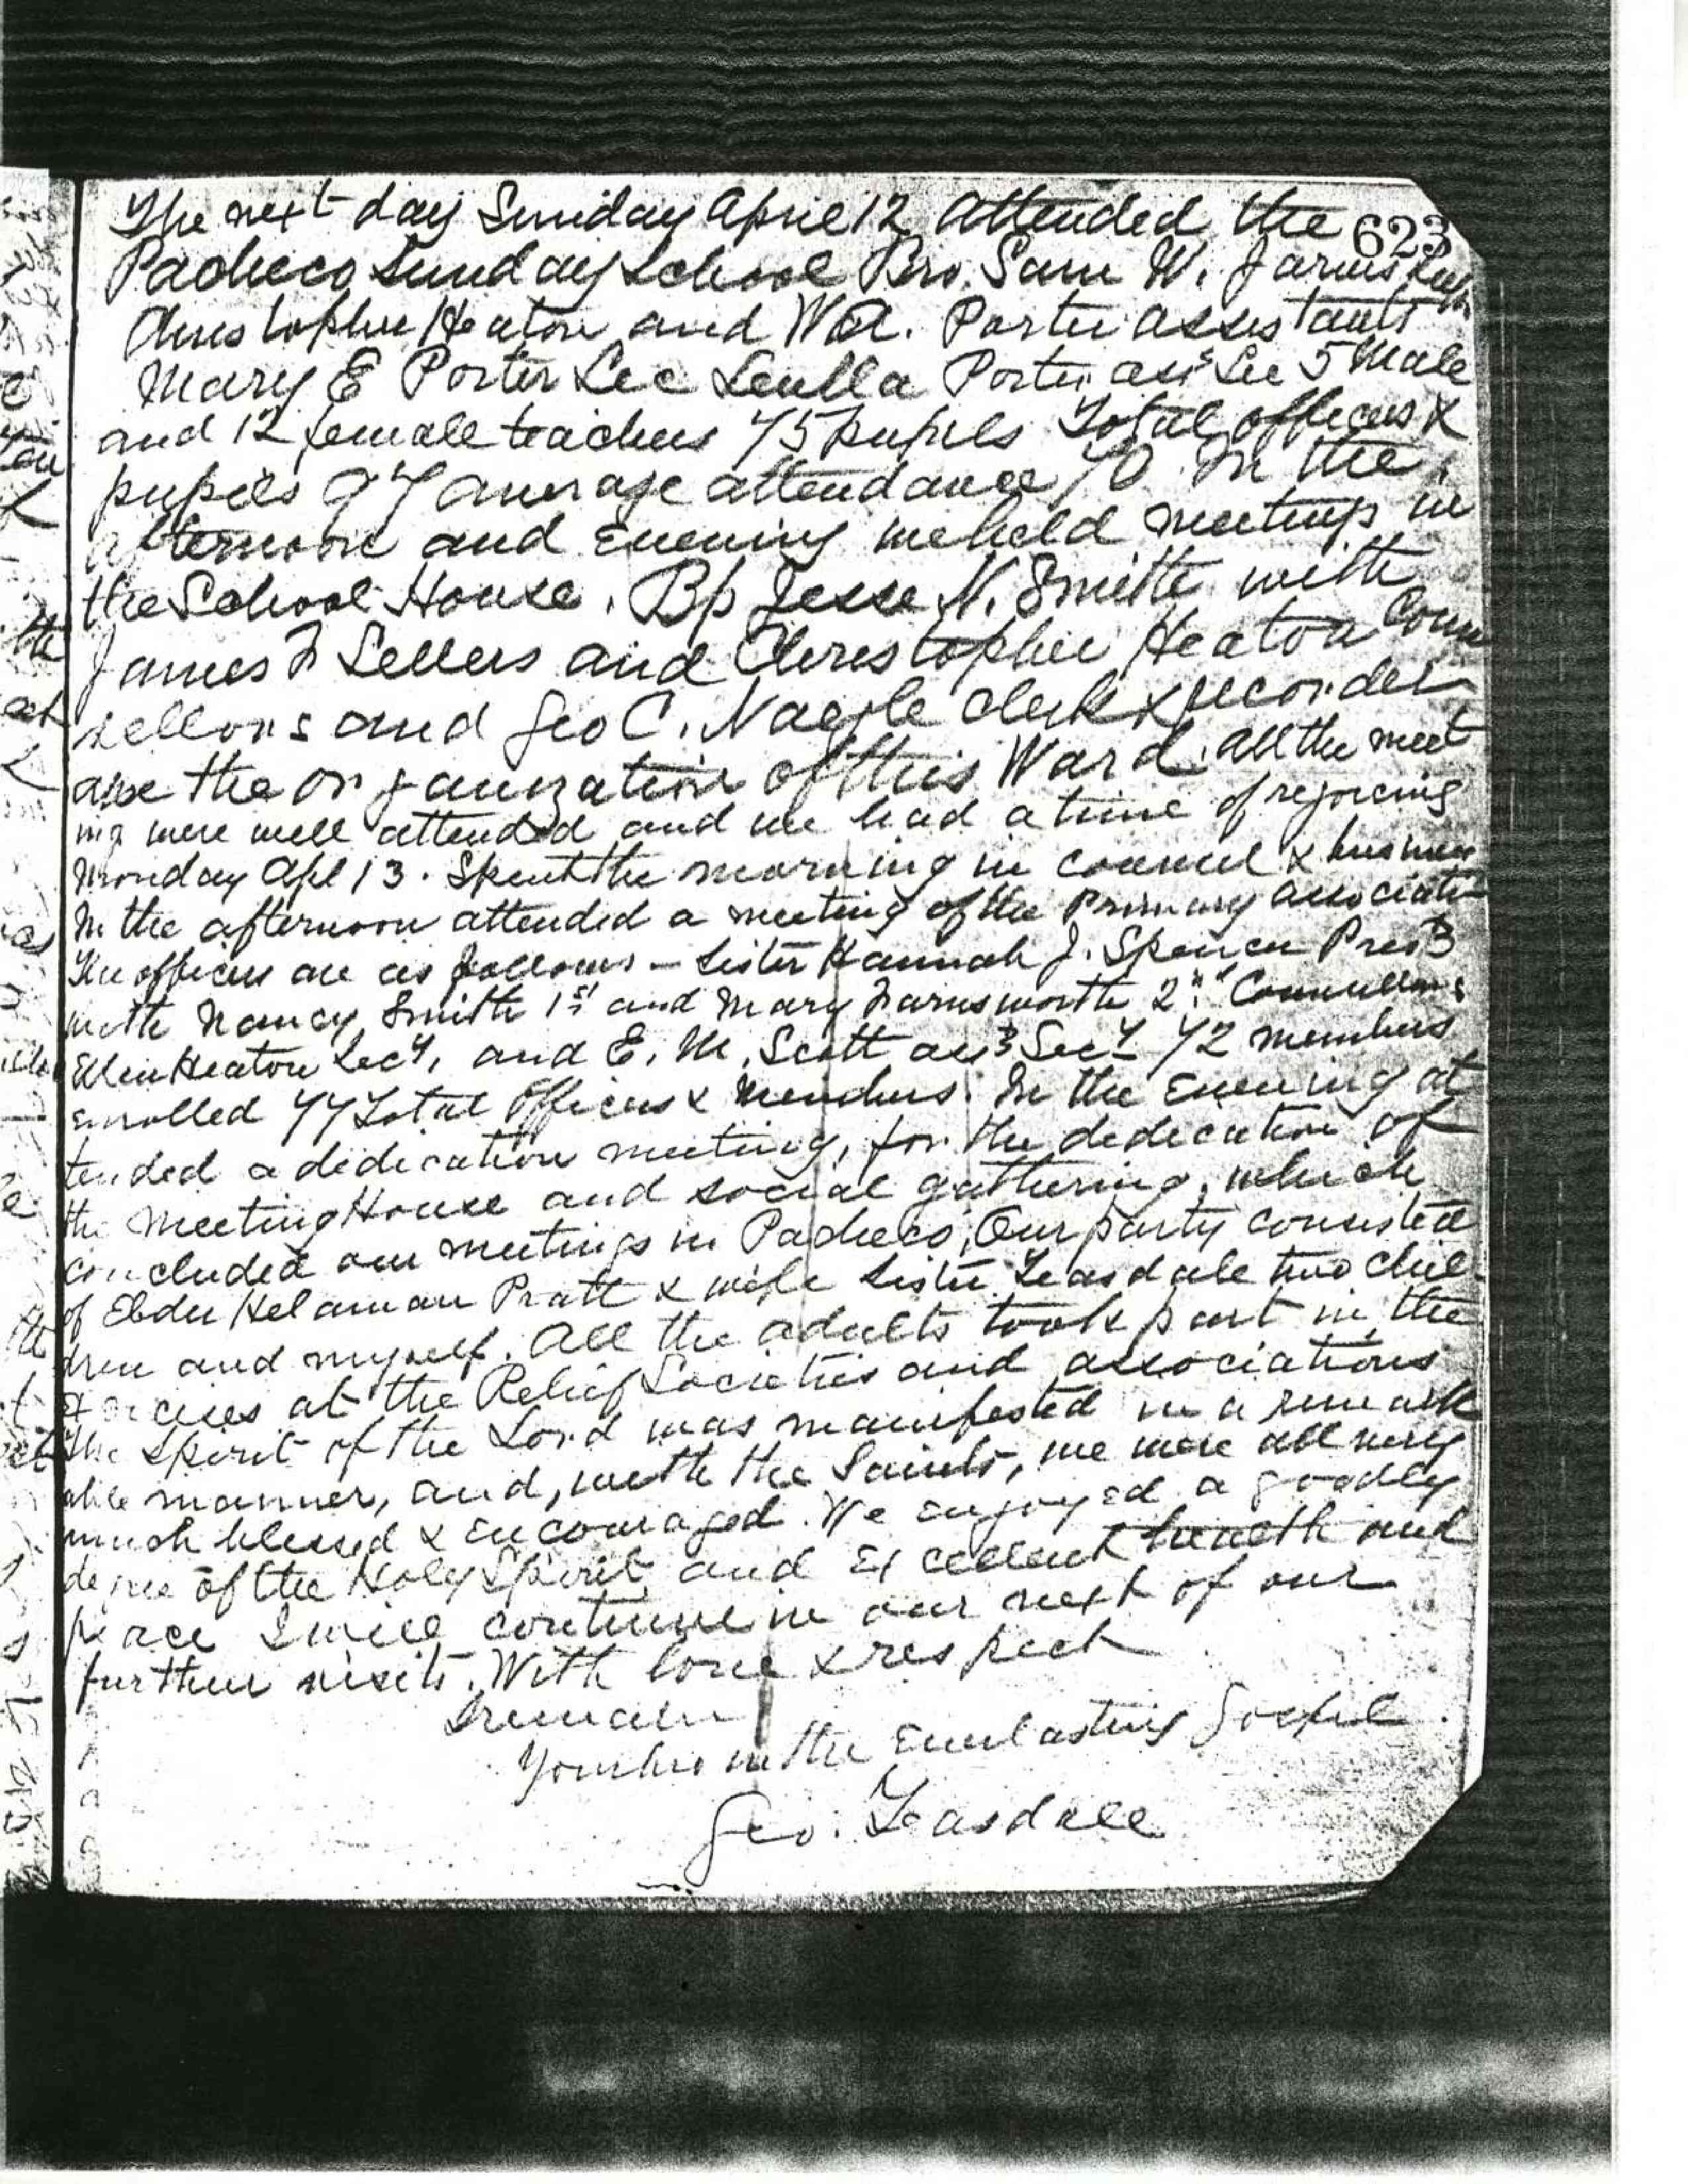 623
The next day Sunday April 12 attended the
Pacheco Sunday School Bro. Sam W. Jarvis Supt
Christopher Heaton and W A. Porter assistants
Mary E Porter Sec Leulla Porter asst Sec 5 Male
and 12 female teachers 75 pupils Total officers &
pupils 97 average attendance 70. In the
afternoon and evening we held meetings in
the School House. Bp Jesse N. Smith with
James F Sellers and Christopher Heaton Coun
sellors and Geo C. Naegle clerk & recorder
are the organization of this Ward. All the meet
ing were well attended and we had a time of rejoicing
Monday Apl 13. Spent the morning in council & business
In the afternoon attended a meeting of the Primary associati
The officers are as follows – Sister Hannah J. Spencer Prest
with Nancy Smith 1st and Mary Farnsworth 2nd Counsellors
Ellen Heaton Secy, and E. M. Scott asst Secy 72 members
enrolled 77 total officers & members. In the evening at
tended a dedication meeting, for the dedication of
the Meeting House and social gathering, which
concluded our meetings in Pacheco. Our party consisted
of Elder Helaman Pratt & wife Sister Teasdale two chil
dren and myself. All the adults took part in the
exercises at the Relief Societies and associations
The Spirit of the Lord was manifested in a remark
able manner, and, with the Saints, we were all very
much blessed & encouraged. We enjoyed a goodly
degree of the Holy Spirit and excellent health and
peace I will continue in our next of our
further visits. With love & respect
I remain
Your bro in the Everlasting Gospel
Geo. Teasdale